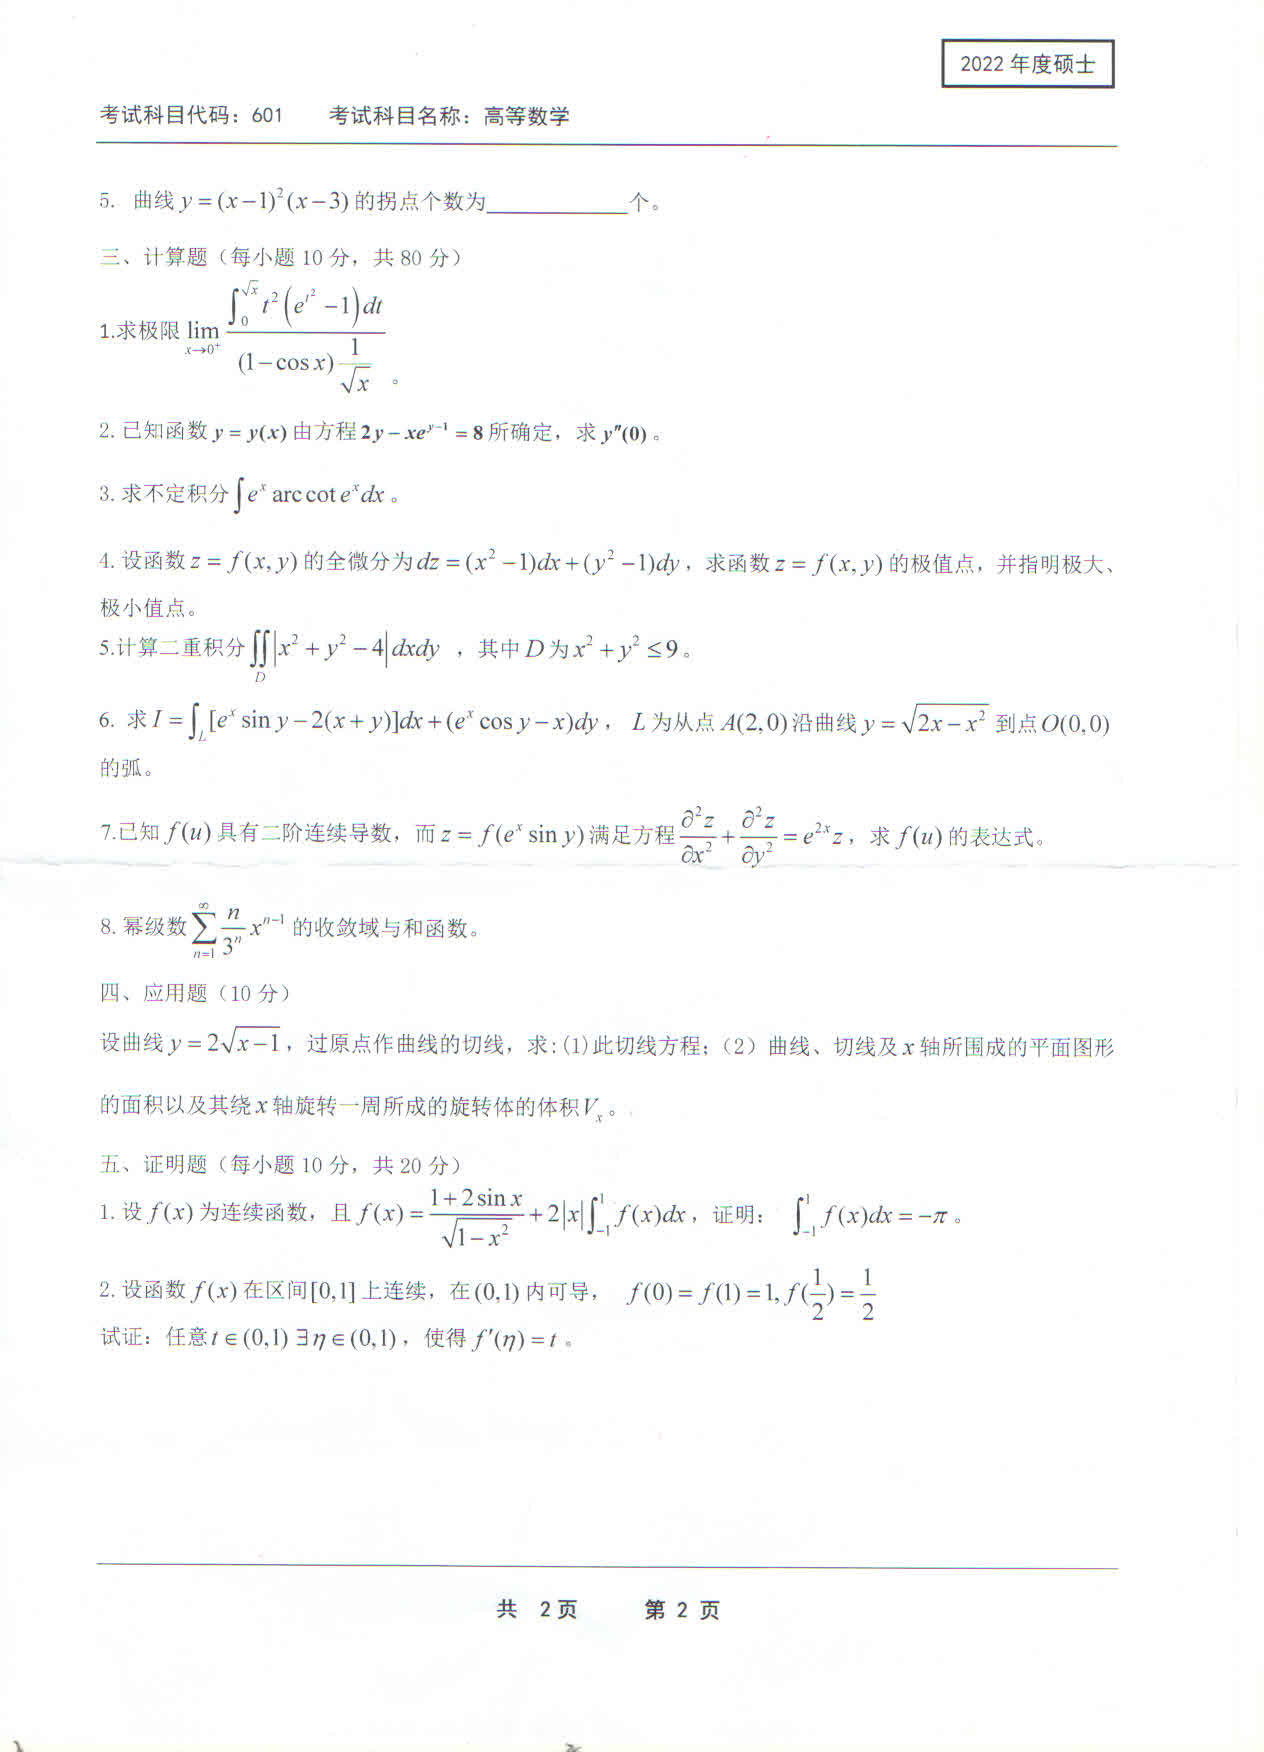 2022 年度硕士
考试科目代码：601 考试科目名称：高等数学
5. 曲线 $y=(x-1)^2(x-3)$ 的拐点个数为____________个。
三、计算题（每小题 10 分，共 80 分）
1.求极限 $\lim\limits_{x\to 0^+}\dfrac{\int_0^{\sqrt{x}}t^2\left(e^{t^2}-1\right)dt}{(1-\cos x)\dfrac{1}{\sqrt{x}}}$ 。
2. 已知函数 $y=y(x)$ 由方程 $2y-xe^{y-1}=8$ 所确定，求 $y''(0)$ 。
3. 求不定积分 $\int e^x \operatorname{arc\,cot} e^x dx$ 。
4. 设函数 $z=f(x,y)$ 的全微分为 $dz=(x^2-1)dx+(y^2-1)dy$，求函数 $z=f(x,y)$ 的极值点，并指明极大、
极小值点。
5.计算二重积分 $\iint\limits_D\left|x^2+y^2-4\right|dxdy$ ，其中 $D$ 为 $x^2+y^2\le 9$ 。
6. 求 $I=\int_L[e^x\sin y-2(x+y)]dx+(e^x\cos y-x)dy$， $L$ 为从点 $A(2,0)$ 沿曲线 $y=\sqrt{2x-x^2}$ 到点 $O(0,0)$
的弧。
7.已知 $f(u)$ 具有二阶连续导数，而 $z=f(e^x\sin y)$ 满足方程 $\dfrac{\partial^2 z}{\partial x^2}+\dfrac{\partial^2 z}{\partial y^2}=e^{2x}z$，求 $f(u)$ 的表达式。
8. 幂级数 $\sum\limits_{n=1}^{\infty}\dfrac{n}{3^n}x^{n-1}$ 的收敛域与和函数。
四、应用题（10 分）
设曲线 $y=2\sqrt{x-1}$，过原点作曲线的切线，求:(1)此切线方程;（2）曲线、切线及 $x$ 轴所围成的平面图形
的面积以及其绕 $x$ 轴旋转一周所成的旋转体的体积 $V_x$ 。
五、证明题（每小题 10 分，共 20 分）
1. 设 $f(x)$ 为连续函数，且 $f(x)=\dfrac{1+2\sin x}{\sqrt{1-x^2}}+2|x|\int_{-1}^{1}f(x)dx$，证明： $\int_{-1}^{1}f(x)dx=-\pi$ 。
2. 设函数 $f(x)$ 在区间 $[0,1]$ 上连续，在 $(0,1)$ 内可导， $f(0)=f(1)=1,f(\dfrac{1}{2})=\dfrac{1}{2}$
试证：任意 $t\in(0,1)\ \exists\eta\in(0,1)$，使得 $f'(\eta)=t$ 。
共 2页 第 2 页